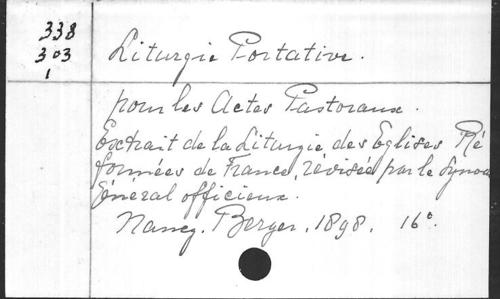 338
303
1
Liturgie Portative.
pour les Actes Pastoraux.
Extrait de la Liturgie des Eglises Ré
formées de France, révisée par le Synod
Général officieux.
Nancy. Berger. 1898. 16°.